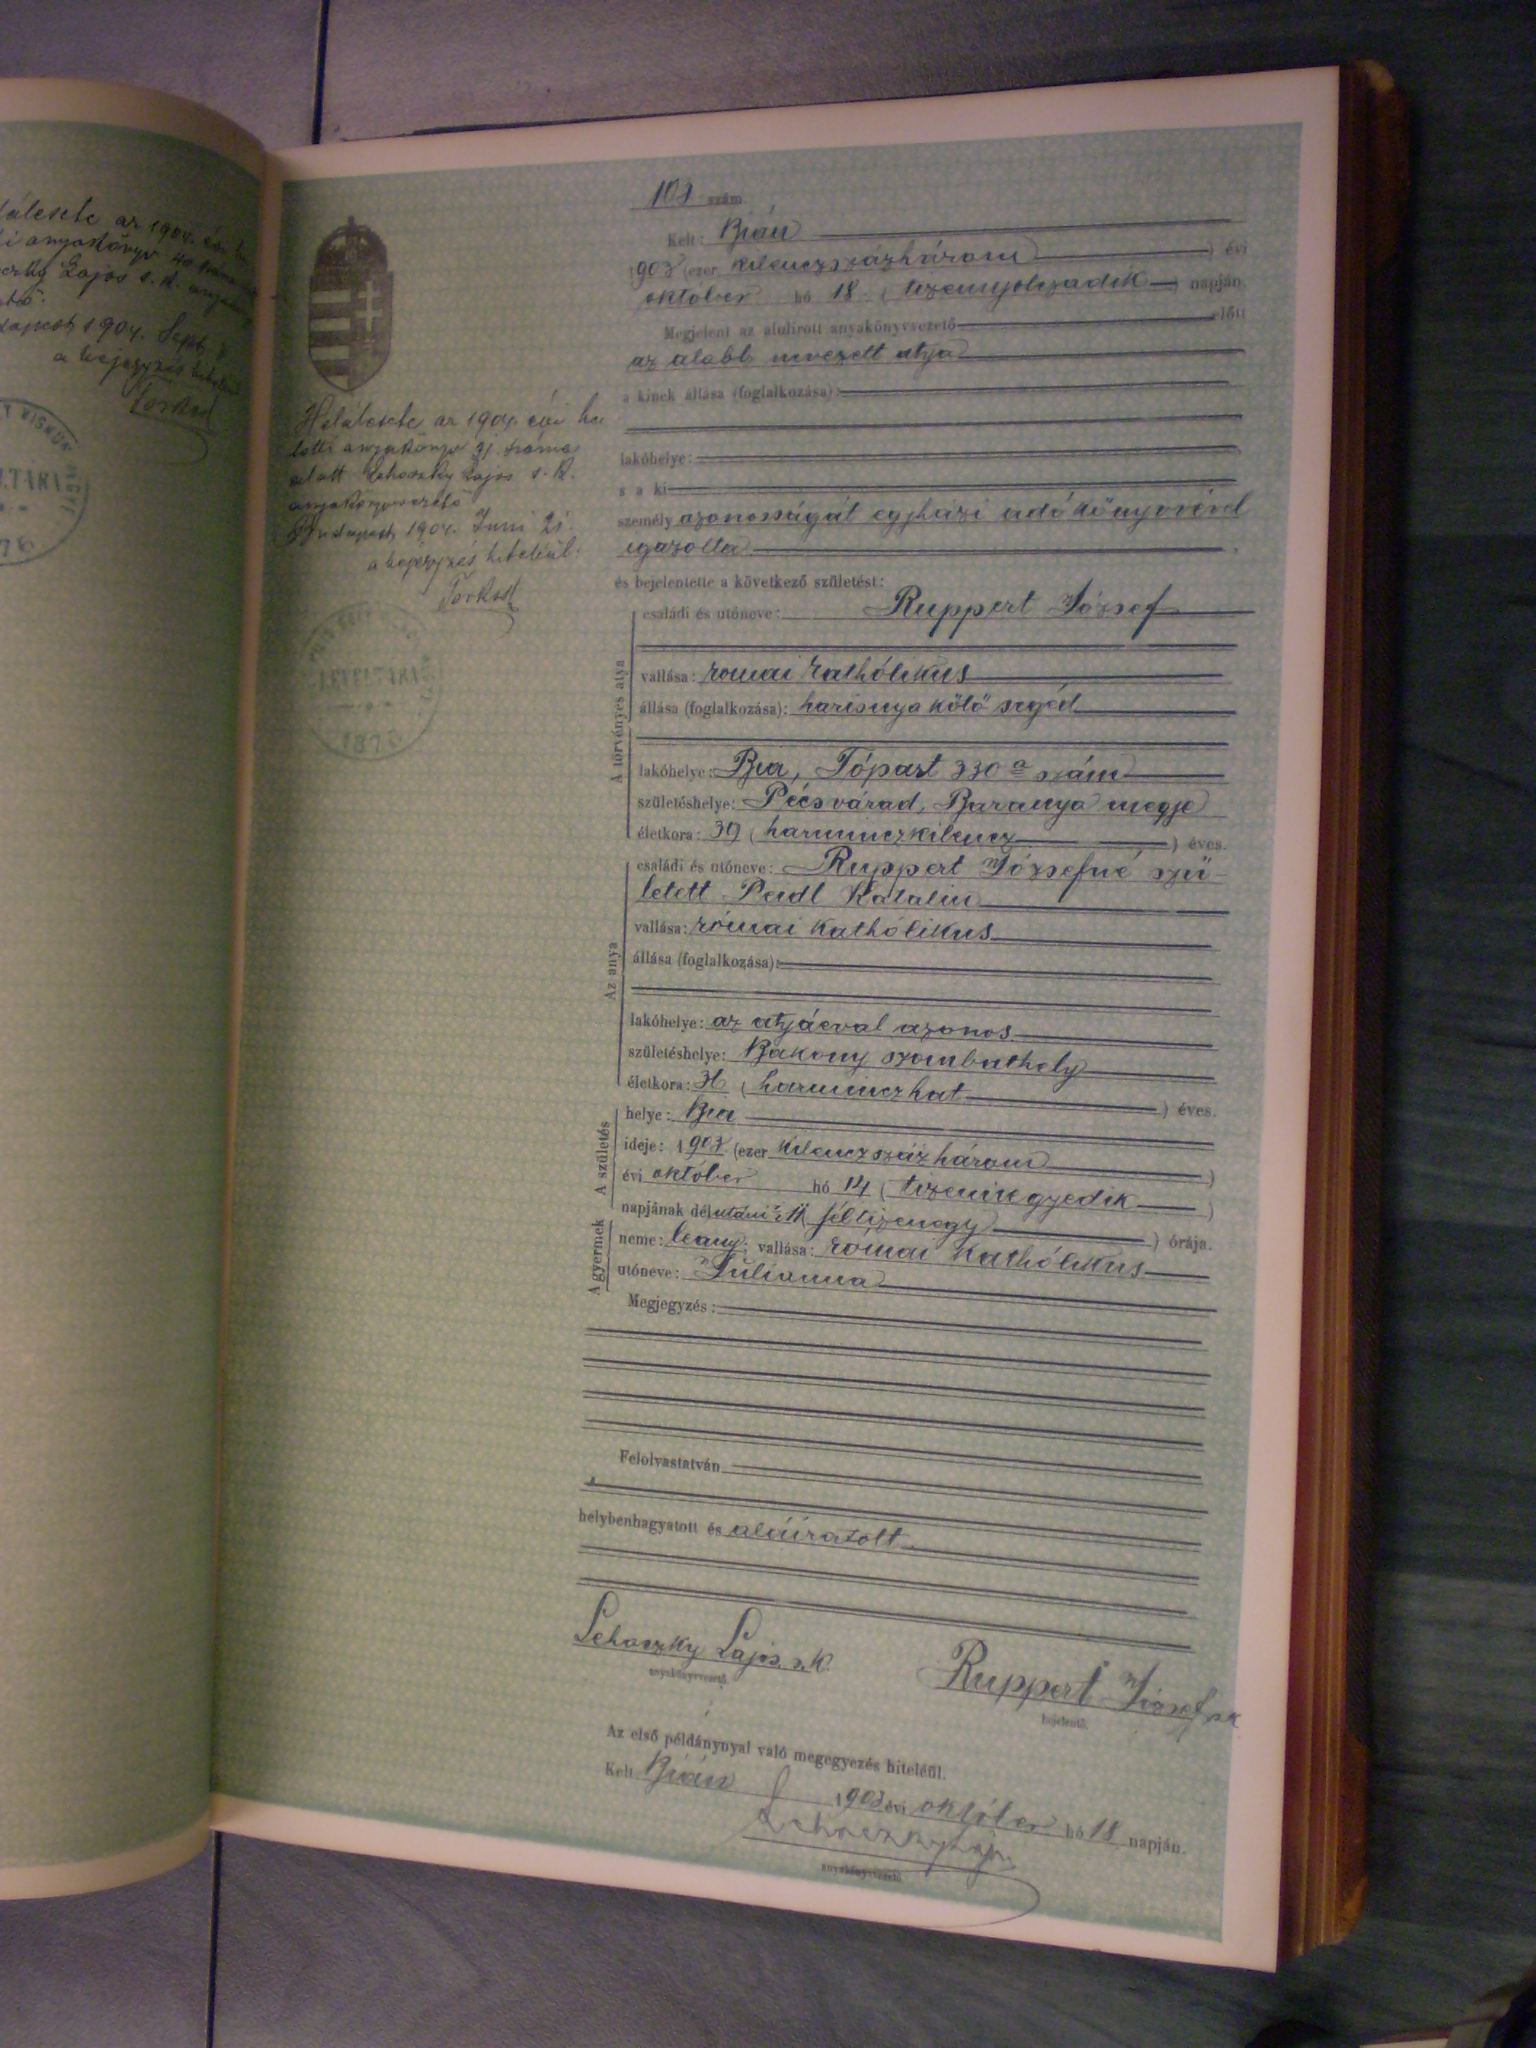 az 1904. évi
anyakönyv 40
Lajos s. k.
1904. Sept.
a bejegyzés
103 szám.
Kelt: Bián
1903 (ezer kilenczszázhárom) évi
október hó 18 (tizennyolczadik) napján.
Megjelent az alulirott anyakönyvvezető előtt
az alább nevezett atya
a kinek állása (foglalkozása):
lakóhelye:
s a ki
személyazonosságát egyházi adókönyvével
igazolta
és bejelentette a következő születést:
Halálesete az 1904. évi ha
lotti anyakönyv 31. száma
alatt Lehoczky Lajos s. k.
anyakönyvvezető
Budapest, 1904. Juni 21.
a bejegyzés hiteléül:
LEVÉLTÁRA
1876
A törvényes atya
családi és utóneve: Ruppert József
vallása: romai kathólikus
állása (foglalkozása): harisnyakötő segéd
lakóhelye: Bia, Tópart 330 a szám
születéshelye: Pécsvárad, Baranya megye
életkora: 39 (harminczkilencz) éves.
Az anya
családi és utóneve: Ruppert Józsefné szü-
letett Peidl Katalin
vallása: római kathólikus
állása (foglalkozása):
lakóhelye: az atyáéval azonos
születéshelye: Bakony szombathely
életkora: 36 (harminczhat) éves.
A születés
helye: Bia
ideje: 1903 (ezer kilenczszáz három)
évi október hó 14 (tizennegyedik)
napjának délutáni (féltizenegy) órája.
A gyermek
neme: leány; vallása: római kathólikus
utóneve: Julianna
Megjegyzés:
Felolvastatván
helybenhagyatott és aláíratott.
Lehoczky Lajos s. k. Ruppert József sk
anyakönyvvezető. bejelentő.
Az első példánynyal való megegyezés hiteléül.
Kelt Bián 1903 évi október hó 18 napján.
Lehoczky Lajos
anyakönyvvezető